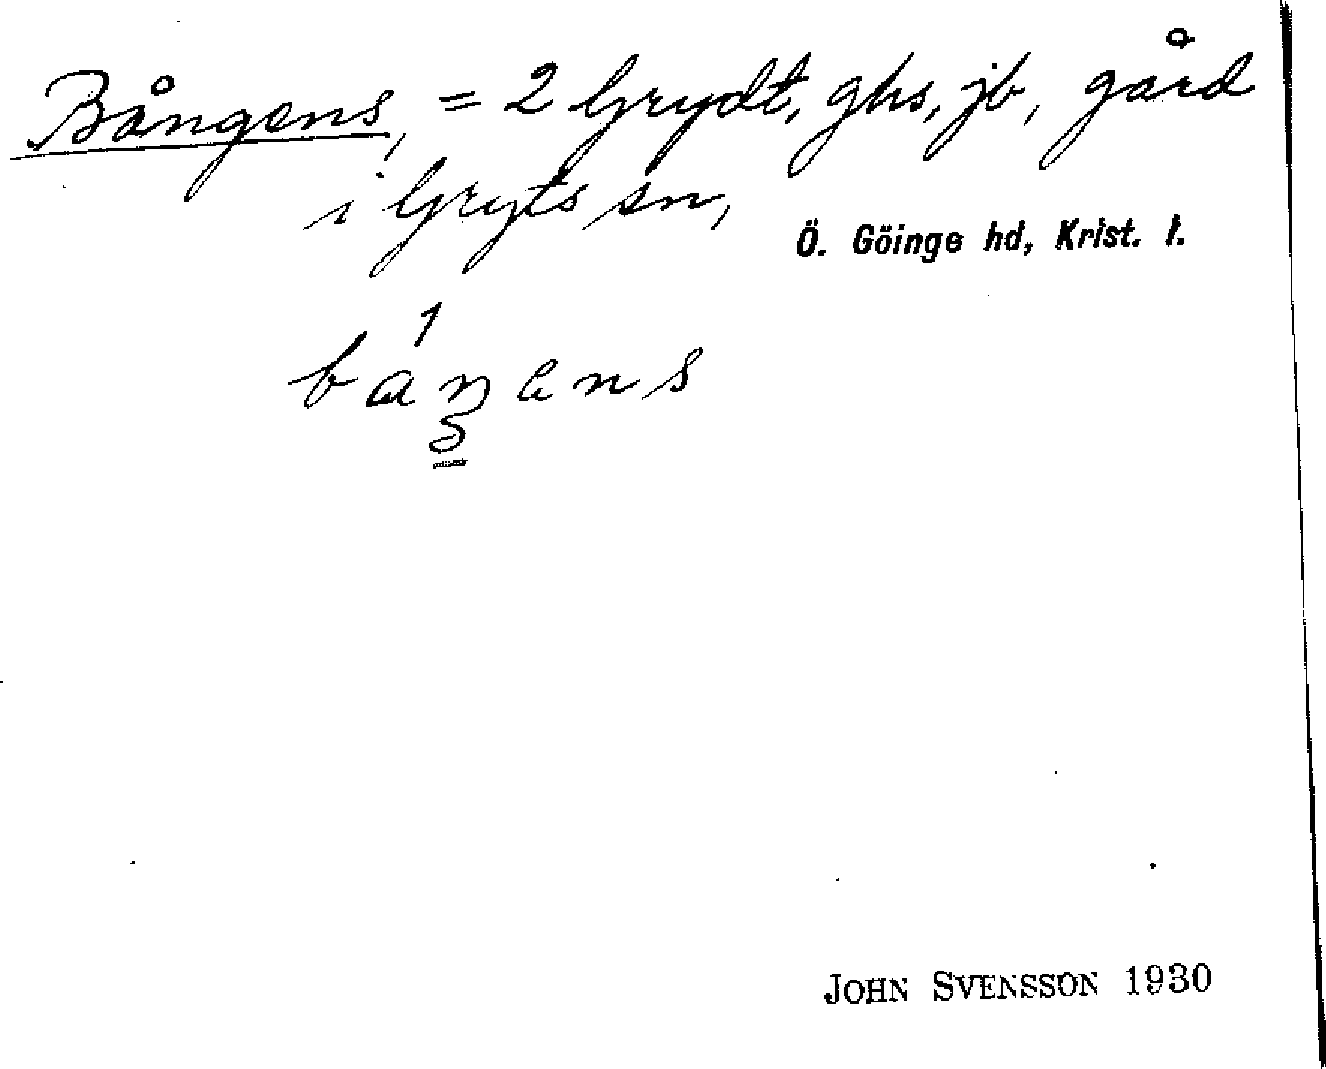 Bångens, = 2 Grydt, ghs, jb, gård
i Gryts sn,
Ö. Göinge hd, Krist. l.
JOHN SVENSSON 1930